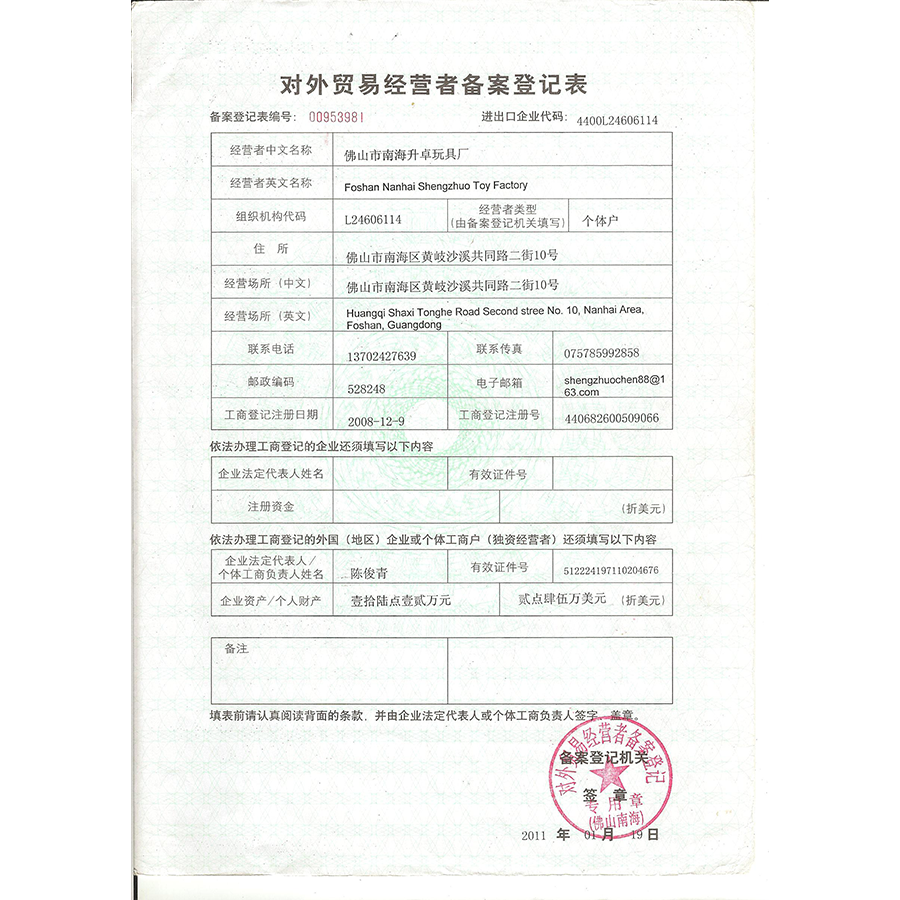 对外贸易经营者备案登记表
备案登记表编号: 00953981 进出口企业代码: 4400L24606114
经营者中文名称 佛山市南海升卓玩具厂
经营者英文名称 Foshan Nanhai Shengzhuo Toy Factory
组织机构代码 L24606114 经营者类型 (由备案登记机关填写) 个体户
住 所 佛山市南海区黄岐沙溪共同路二街10号
经营场所(中文) 佛山市南海区黄岐沙溪共同路二街10号
经营场所(英文) Huangqi Shaxi Tonghe Road Second stree No. 10, Nanhai Area,
Foshan, Guangdong
联系电话 13702427639 联系传真 075785992858
邮政编码 528248 电子邮箱 shengzhuochen88@1
63.com
工商登记注册日期 2008-12-9 工商登记注册号 440682600509066
依法办理工商登记的企业还须填写以下内容
企业法定代表人姓名 有效证件号
注册资金 (折美元)
依法办理工商登记的外国(地区)企业或个体工商户(独资经营者)还须填写以下内容
企业法定代表人/
个体工商负责人姓名 陈俊青 有效证件号 512224197110204676
企业资产/个人财产 壹拾陆点壹贰万元 贰点肆伍万美元 (折美元)
备注
填表前请认真阅读背面的条款,并由企业法定代表人或个体工商负责人签字、盖章。
对外贸易经营者备案登记
备案登记机关
签 章
专用章
(佛山南海)
2011 年 01 月 19 日